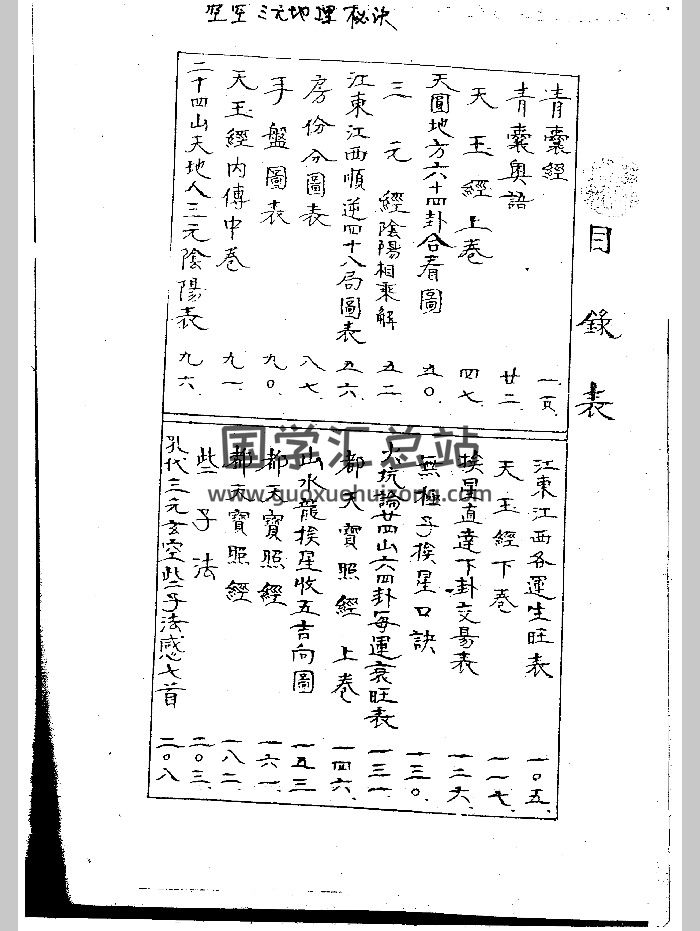 空空三元地理秘决
目錄表
青囊經 一頁
青囊奧語 廿二
天玉經上卷 四七
天圓地方六十四卦合看圖 五0
三元經陰陽相乘解 五二
江東江西順逆四十八局圖表 五六
房份分圖表 八七
手盤圖表 九0
天玉經內傳中卷 九一
二十四山天地人三元陰陽表 九六
江東江西各運生旺表 一0五
天玉經下卷 一一七
挨星直達下卦交易表 一二六
無極子挨星口訣 一三0
坑論廿四山六四卦每運衰旺表 一三一
都天寶照經上卷 一四六
山水龍挨星收五吉向圖 一五三
都天寶照經 一六一
都天寶照經 一八二
些子法 二0三
孔代三元玄空些子法感七首 二0八
国学汇总站
www.guoxuehuizong.com